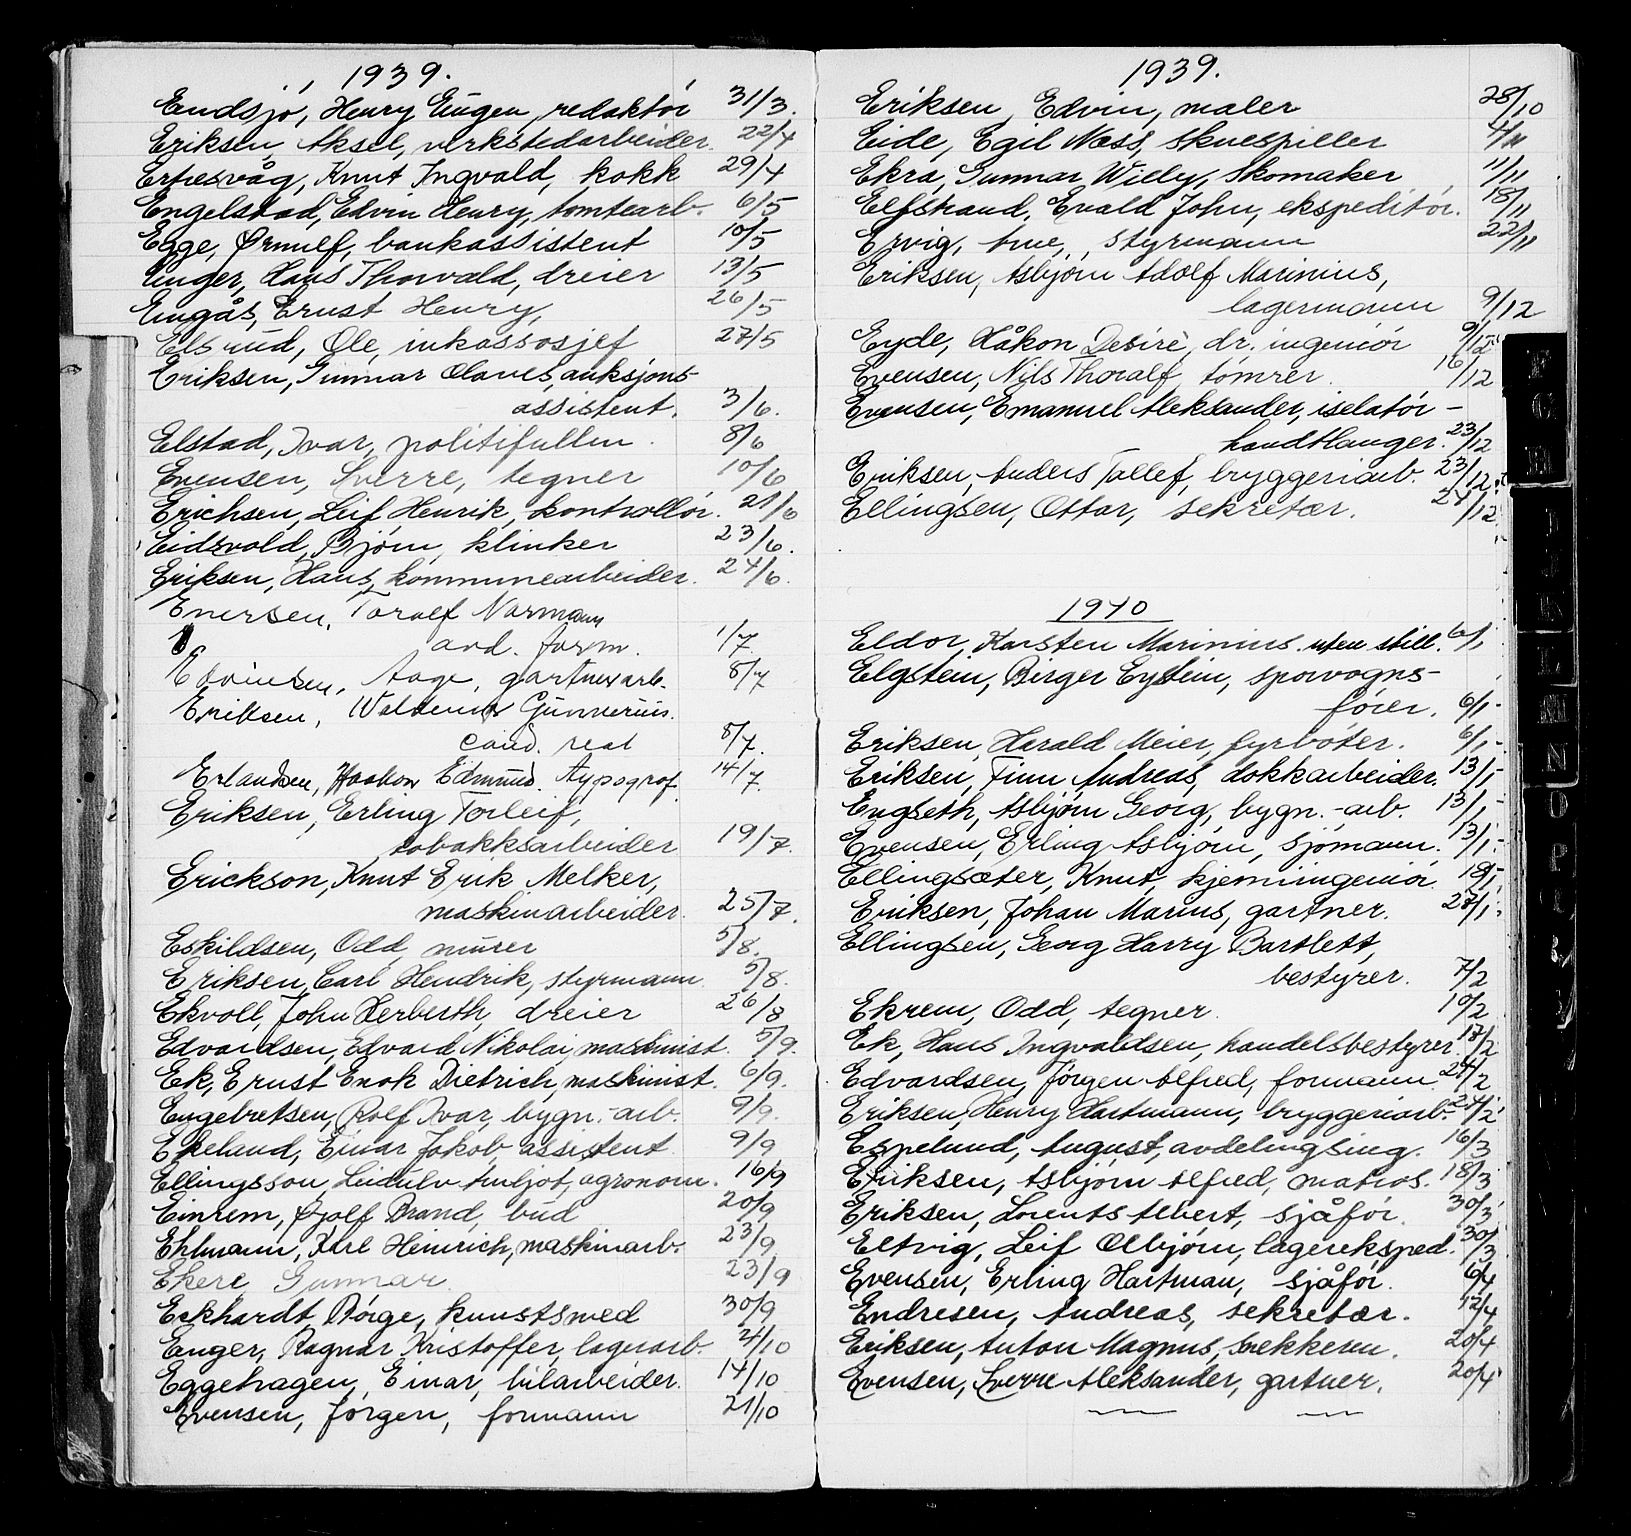 1939.
Endsjø, Henry Eugen, redaktør 31/3.
Eriksen, Aksel, verkstedarbeider. 22/4
Ertresvåg, Knut Ingvald, kokk 29/4
Engelstad, Edvin Henry, tomtearb. 6/5
Ege, Ørnulf, bankassistent 10/5
Enger, Hans Thorvald, dreier 13/5
Engås, Ernst Henry, 26/5
Elsrud, Ole, inkassosjef 27/5
Eriksen, Gunnar Olaves, auksjons-
assistent. 3/6.
Elstad, Ivar, politifullm. 8/6
Evensen, Sverre, tegner 10/6
Erichsen, Leif Henrik, kontrollør. 21/6
Eidsvold, Bjørn, klinker 23/6.
Eriksen, Hans, kommunearbeider. 24/6.
Enersen, Toralf Normann
avd. form. 1/7.
Edvinsen, Aage, gartnerarb. 8/7
Eriksen, Waldemar Gunnerius.
cand. real 8/7.
Erlandsen, Haakon Edmund. typograf. 14/7.
Eriksen, Erling Torleif,
tobakksarbeider 19/7.
Erickson, Knut Erik Melker,
maskinarbeider. 25/7.
Eskildsen, Odd, murer 5/8.
Eriksen, Carl Hendrik, styrmann 5/8.
Ekvoll, John Herberth, dreier 26/8
Edvardsen, Edvard Nikolai, maskinist. 5/9.
Ek, Ernst Enok Dietrich, maskinist. 6/9.
Engebretsen, Rolf Ivar, bygn.-arb. 9/9.
Ekeland, Einar Jakob, assistent. 9/9
Ellingsson, Leidulv Arnljot, agronom. 16/9
Einrem, Øjolf Brand, bud 20/9
Ehlmann, Karl Heinrich, maskinarb. 23/9
Ekere Gunnar 23/9
Eckhardt, Børge, kunstsmed 30/9
Enger, Ragnar Kristoffer, lagerarb. 2/10
Eggehagen, Einar, bilarbeider. 14/10
Evensen, Jørgen, formann 21/10
1939.
Eriksen, Edvin, maler 28/10
Eide, Egil Næss, skuespiller 4/11
Ekra, Gunnar Willy, skomaker 11/11
Elfstrand, Evald John, ekspeditør. 18/11
Ervig, Arne, styrmann 22/11
Eriksen, Asbjørn Adolf Marinius,
lagermann 9/12
Eyde, Håkon Desirè, dr. ingeniør 9/12
Evensen, Nils Thoralf, tømrer. 16/12
Evensen, Emanuel Aleksander, isolatør-
handtlanger. 23/12
Eriksen, Anders Tollef, bryggeriarb. 23/12.
Ellingsen, Ottar, sekretær. 24/12
1940
Eldor, Karsten Marinius. uten still. 6/1
Elgstein, Birger Eystein, sporvogns-
fører. 6/1-
Eriksen, Harald Meier, fyrbøter. 6/1-
Eriksen, Finn Andreas, dokkarbeider. 13/1-
Engseth, Asbjørn Georg, bygn.-arb. 13/1-
Evensen, Erling Asbjørn, sjømann. 13/1-
Ellingsæter, Knut, kjemiingeniør. 18/1
Eriksen, Johan Marius, gartner. 27/1.
Ellingsen, Georg Harry Bartlett,
bestyrer. 7/2
Ekrem, Odd, tegner. 10/2
Ek, Hans Ingvaldsen, handelsbestyrer. 17/2
Edvardsen, Jørgen Alfred, formann. 24/2
Eriksen, Henry Hartmann, bryggeriarb. 24/2
Espelund, August, avdelingsing. 16/3
Eriksen, Asbjørn Alfred, matros. 18/3
Eriksen, Lorents Albert, sjåfør. 30/3
Eltvig, Leif Olbjørn, lagereksped. 30/3
Evensen, Erling Hartman, sjåfør. 6/4
Endresen, Andreas, sekretær. 12/4
Eriksen, Anton Magnus, snekkersv. 20/4
Evensen, Sverre Aleksander, gartner. 20/4
F
G
H
I
J
K
L
M
N
O
P